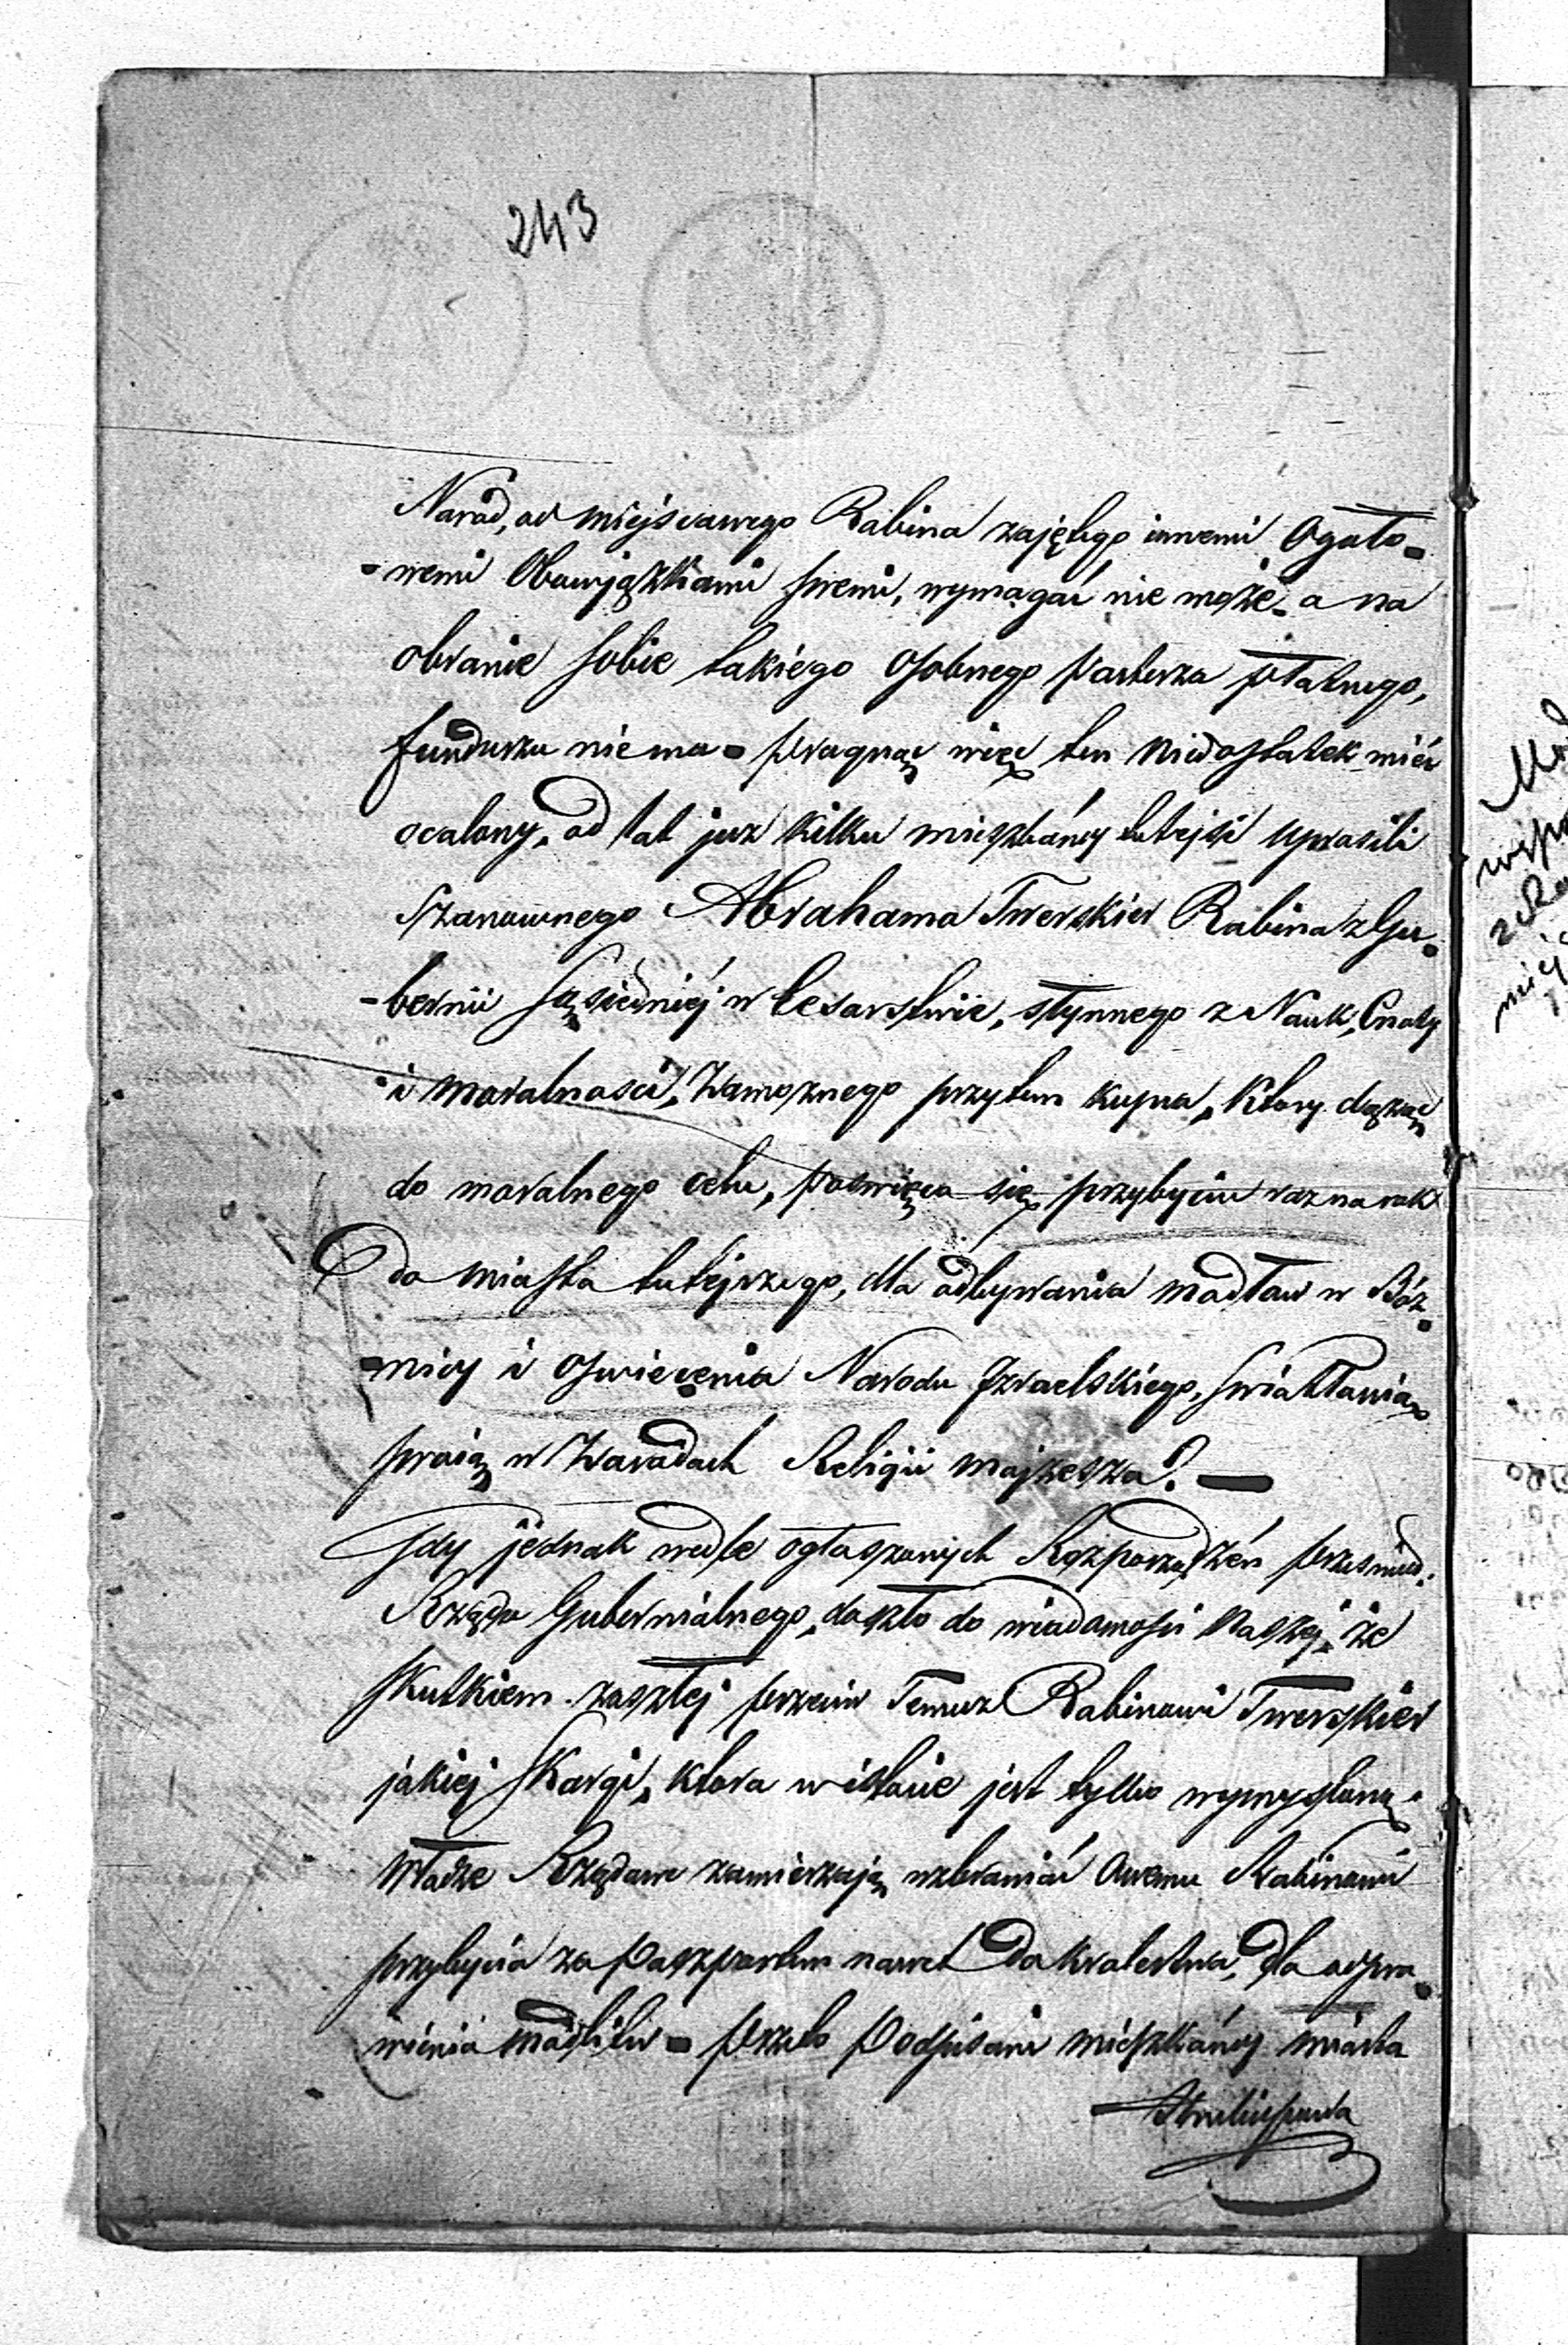 243
Naród, od miejscowego Rabina zajętego innemi Ogóło-
-wemi Obowiązkami swemi, wymagać nie może - a na
obranie sobie takiego osobnego Pasterza płatnego,
funduszu nie ma - pragnąc więc ten niedostatek mieć
ocalony, od lat już kilku mieszkańcy tutejsi uprosili
Szanownego Abrahama Twerskier Rabina z Gu-
-bernii Sąsiedniéj w Cesarstwie, słynnego z Nauk, Cnoty
i moralności, Zamożnego przytem kupca, Który dążąc
do moralnego celu, poświęca się przybyciu raz na rok
do miasta tutéjszego, dla odbywania modłów w Bóż-
-nicy i oświecenia Narodu Izraelskiego, Swiatłemi
w Zasadach Religii mojżesza. —
Gdy jednak wedle ogłaszanych Rozporządzeń przez
Rządu Gubernialnego, doszło do wiadomości Naszéj, że
skutkiem zaszłej przeciw Temuż Rabinowi Twerskier
jakiej Skargi, która w istocie jest tylko wymysłem,
Władze Rządowe zamierzają wzbraniać Owemu Rabinowi
przybycia za Paszportem nawet Do Krolestwa, dla odpra-
wienia modlitw - przeto Podpisani mieszkańcy miasta